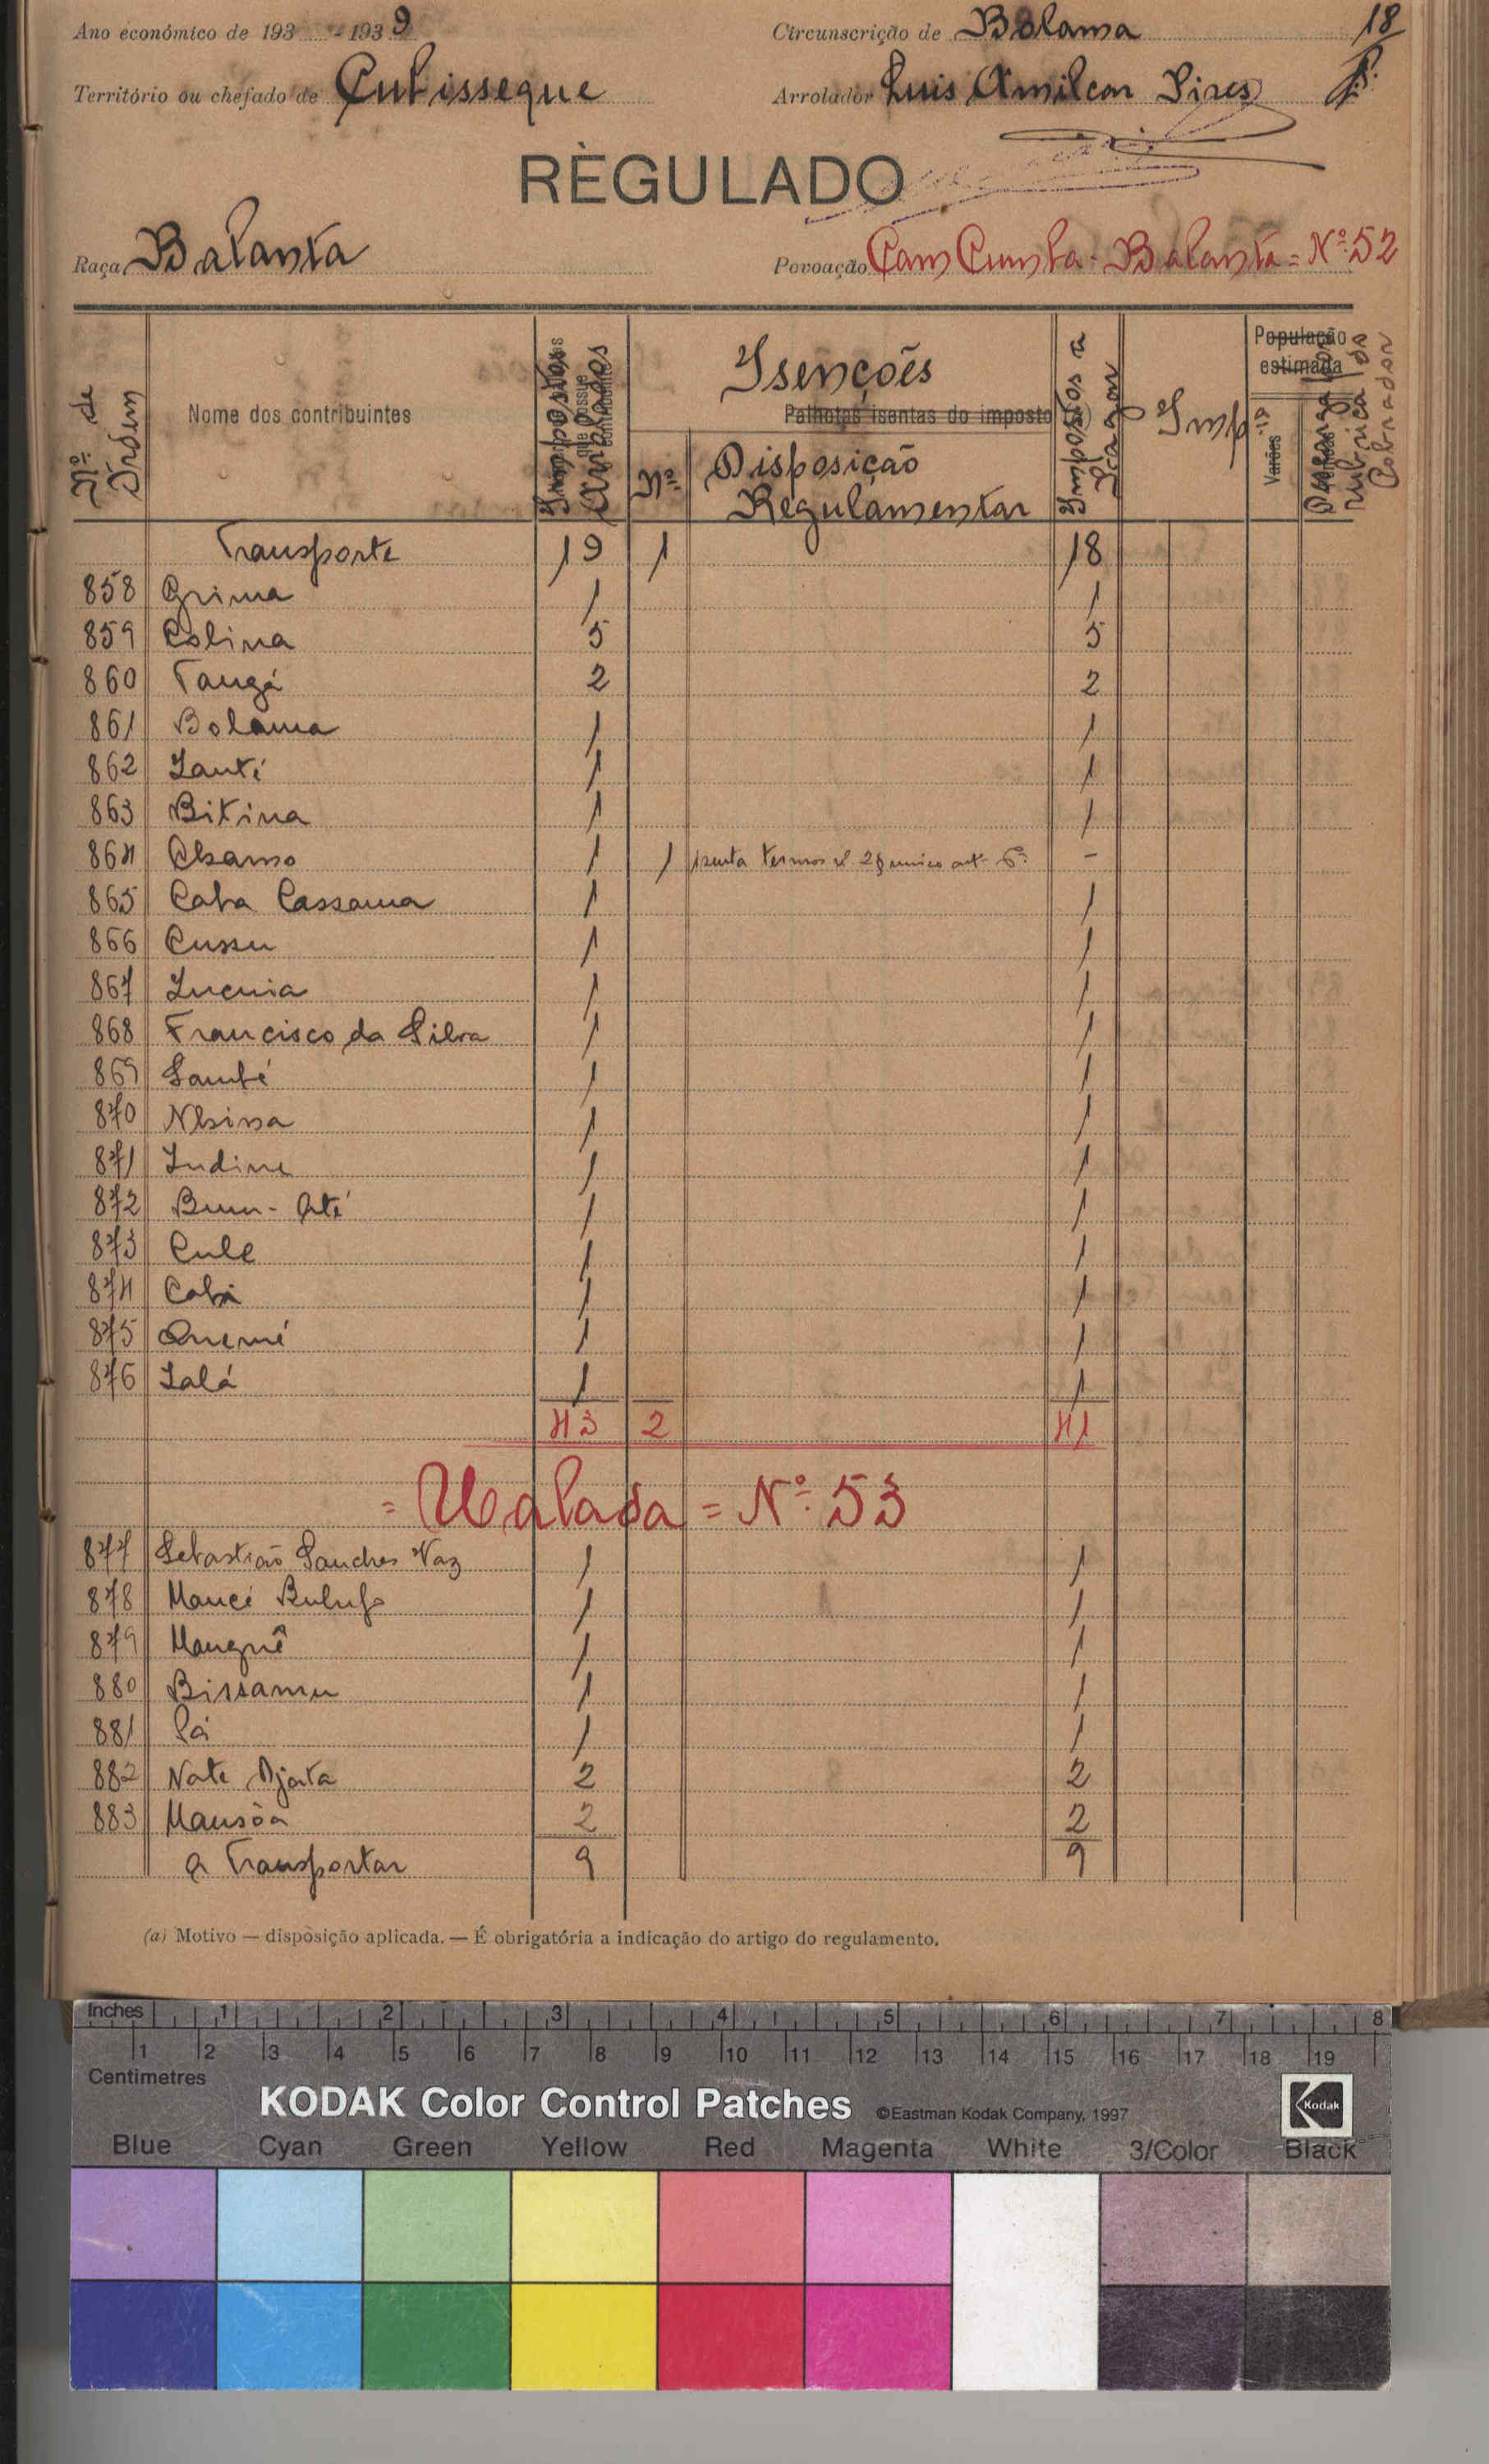 Ano económico de 193 - 1939 Circunscrição de Bolama 18
Território ou chefado de Cubisseque Arrolador Luis Amilcar Pires
RÈGULADO
Raça Balanta Povoação Cam Cunha - Balanta = Nº 52
Nº de Ordem Nome dos contribuintes Impostos Arrolados Isenções Impostos a Pagar Imp. População estimada
Palhotas isentas do imposto (a)
Nº Disposição Regulamentar Varões rubrica do Cobrador
Transporte 19 1 18
858 Grima 1 1
859 Colina 5 5
860 Tangá 2 2
861 Bolama 1 1
862 Iantí 1 1
863 Bitina 1 1
864 Chamo 1 1 isenta termos nº 2 § unico art. 6º -
865 Caba Cassama 1 1
866 Cussu 1 1
867 Iucuia 1 1
868 Francisco da Silva 1 1
869 Sambé 1 1
870 Nhina 1 1
871 Indine 1 1
872 Bum - Até 1 1
873 Cule 1 1
874 Cabá 1 1
875 Quemé 1 1
876 Ialá 1 1
43 2 41
= Ualada = Nº 53
877 Sebastião Sanches Vaz 1 1
878 Mancé Bulufo 1 1
879 Manguê 1 1
880 Bissamu 1 1
881 Pá 1 1
882 Nate Djata 2 2
883 Mansôa 2 2
a Transportar 9 9
(a) Motivo — disposição aplicada. — É obrigatória a indicação do artigo do regulamento.
Inches 1 2 3 4 5 6 7 8
1 2 3 4 5 6 7 8 9 10 11 12 13 14 15 16 17 18 19
Centimetres
KODAK Color Control Patches ©Eastman Kodak Company, 1997 Kodak
Blue Cyan Green Yellow Red Magenta White 3/Color Black